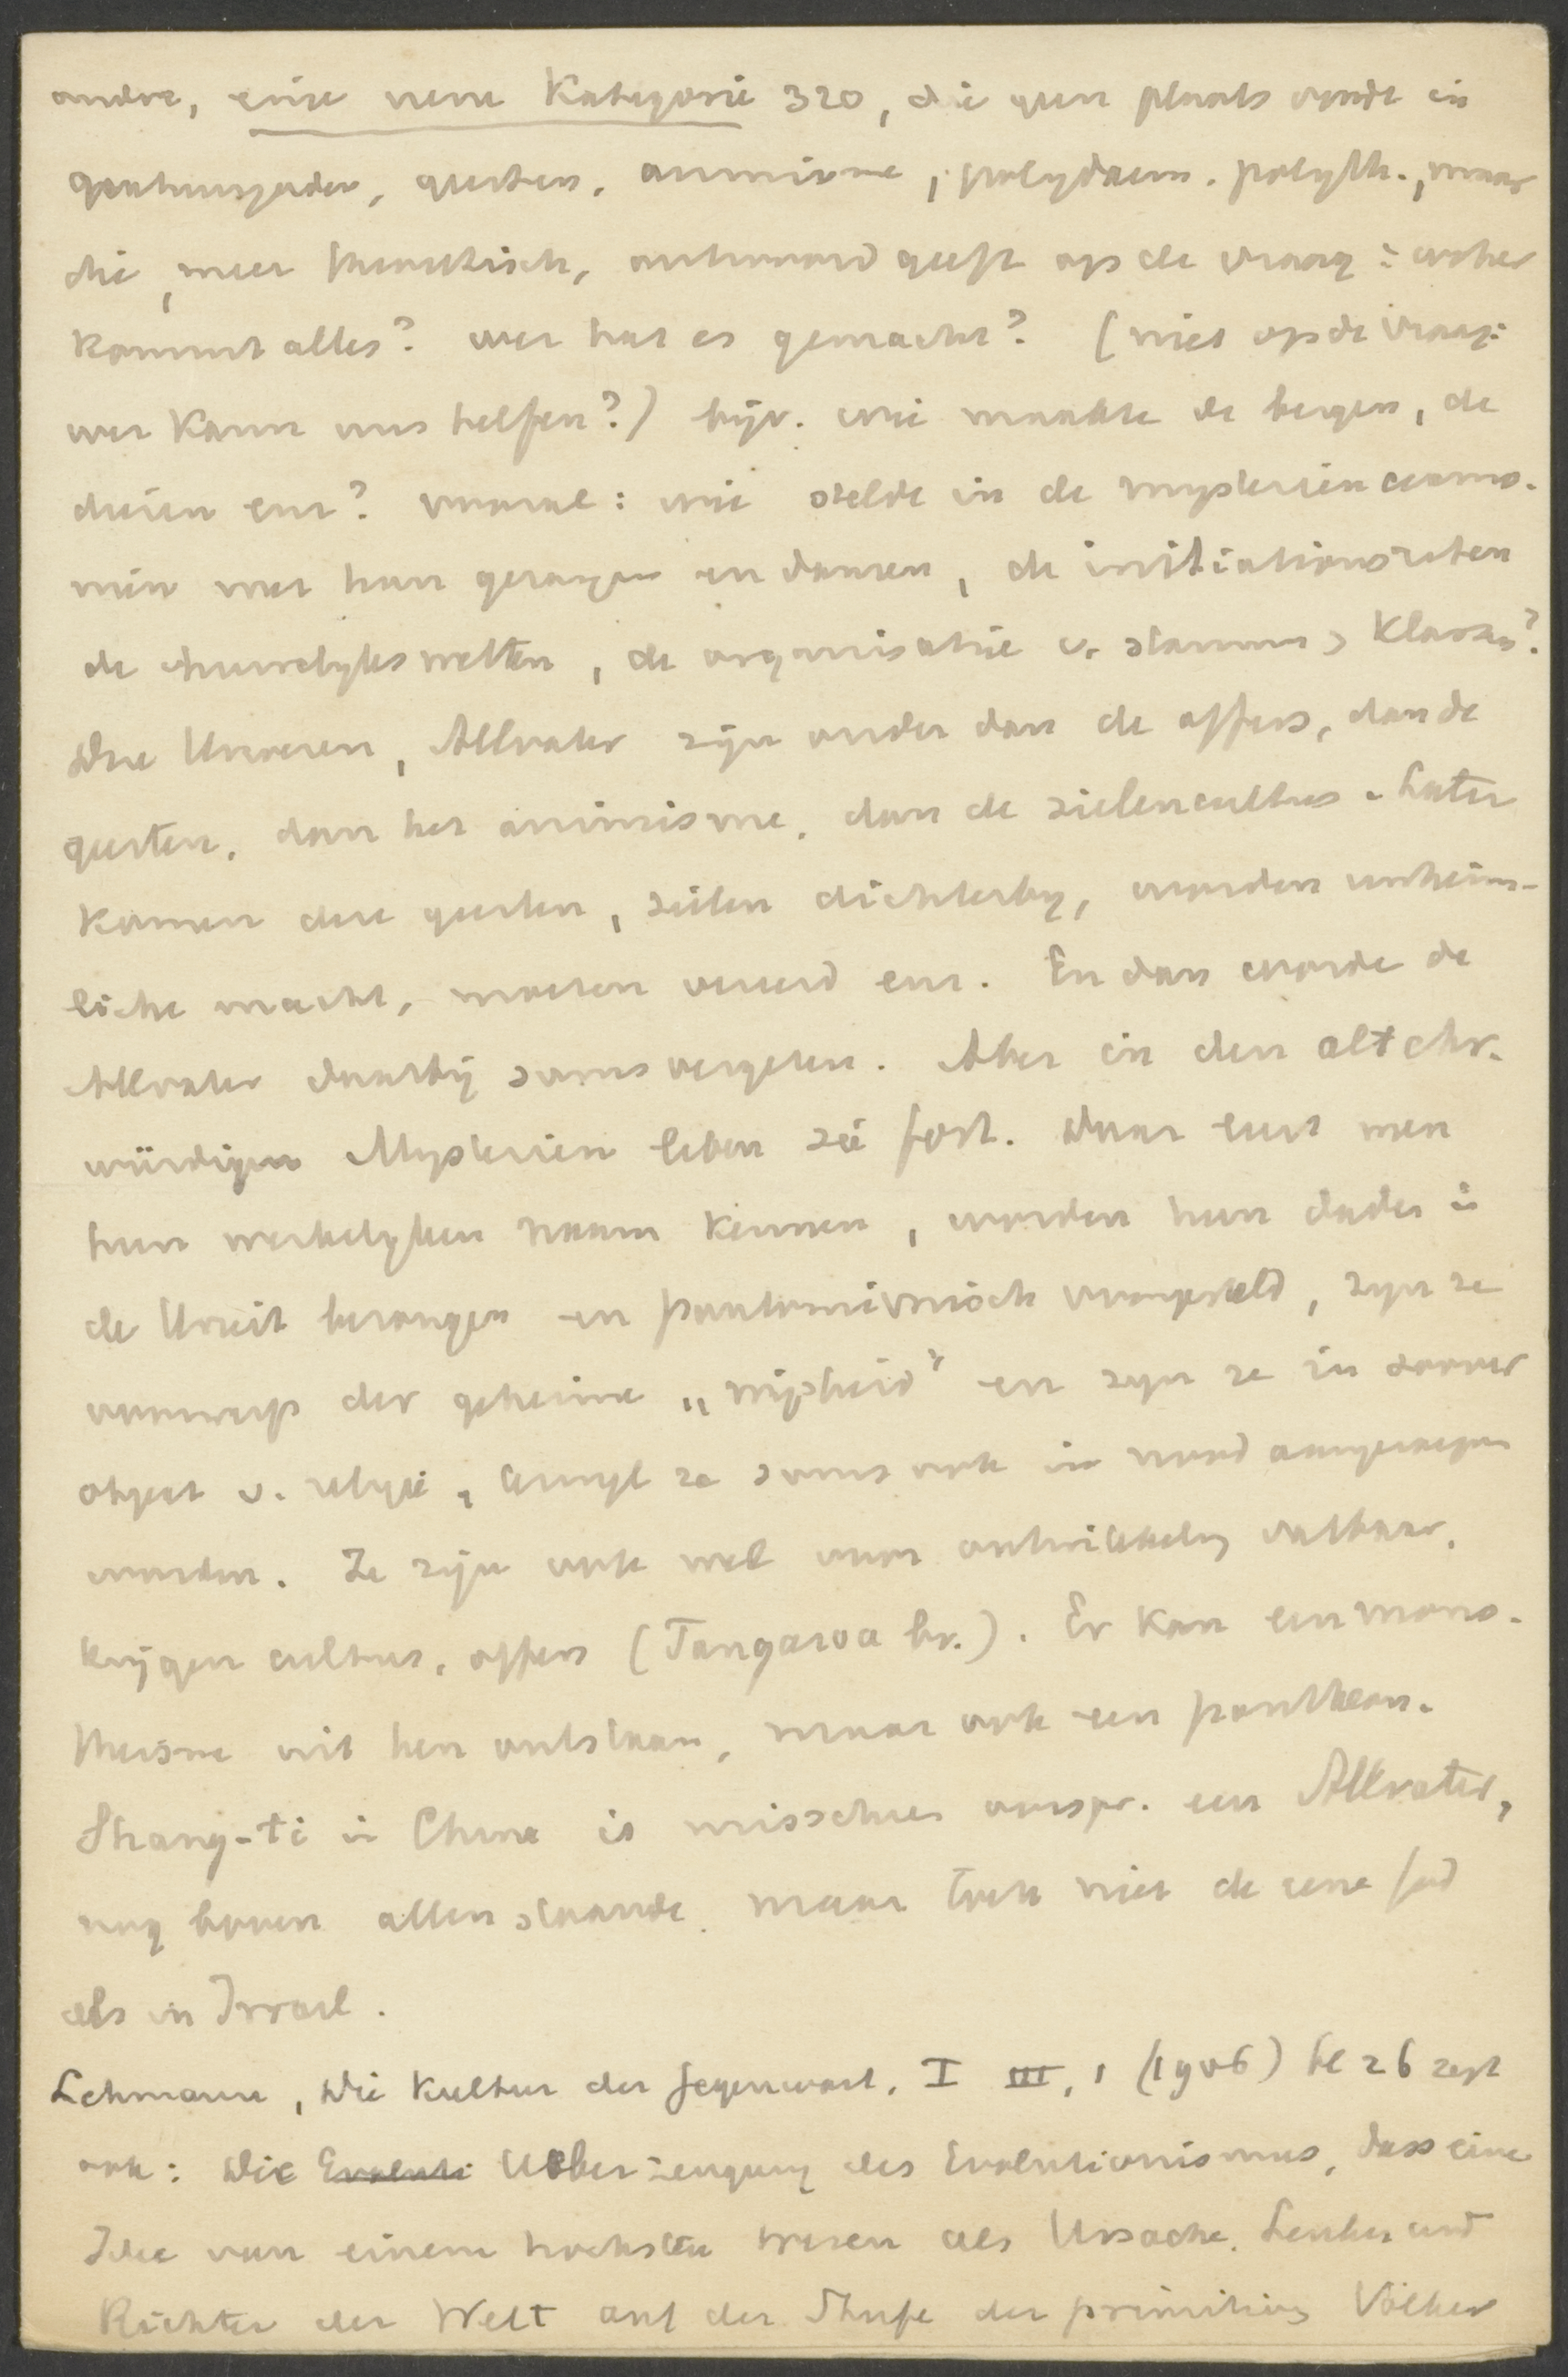 andre, eine neue Kategorie 320, die geen plaats vindt in
natuurgoden, geesten, animisme, polydaem. polyth., maar
die, meer theoretisch, antwoord geeft op de vraag: woher
kommt alles? wer hat es gemacht? (niet op de vraag:
wer kann uns helfen?) bijv. wie maakte de bergen, de
dieren enz? vooral: wie stelde in de mysteriën ceremo-
niën met hun gezangen en dansen, de initiationsriten
de huwelykswetten, de organisatie v. stammen > klassen?
Die Urwesen, Allvater zijn ouder dan de offers, dan de
geesten, dan het animisme, dan de zielencultus. Later
komen deze geesten, zielen dichterby, worden unheim-
liche macht, moeten vereerd enz. En dan worde de
Allvater daarbij soms vergeten. Aber in den altehr-
würdigen Mysterien leben sie fort. Daar leert men
hun werkelyken naam kennen, worden hun daden in
de Urzeit bezongen en pantomimisch voorgesteld, zyn ze
voorwerp der geheime „wijsheid" en zyn ze in zoover
object v. religie, terwyl ze soms ook in nood aangeroepen
worden. Ze zijn ook wel voor ontwikkeling vatbaar,
krijgen cultus, offers (Tangaroa bv.). Er kan een mono-
theisme uit hen ontstaan, maar ook een pantheon.
Shang-ti in China is misschien oorspr. een Allvater,
nog boven allen staande, maar toch niet de eene God
als in Israel.
Lehmann, Die Kultur der Gegenwart, I III, 1 (1906) bl 26 zegt
ook: Die Evoluti Ueberzeugung des Evolutionismus, dass eine
Idee von einem hochsten Wesen als Ursache, Lenker und
Richter der Welt auf der Stufe der primitiven Völker